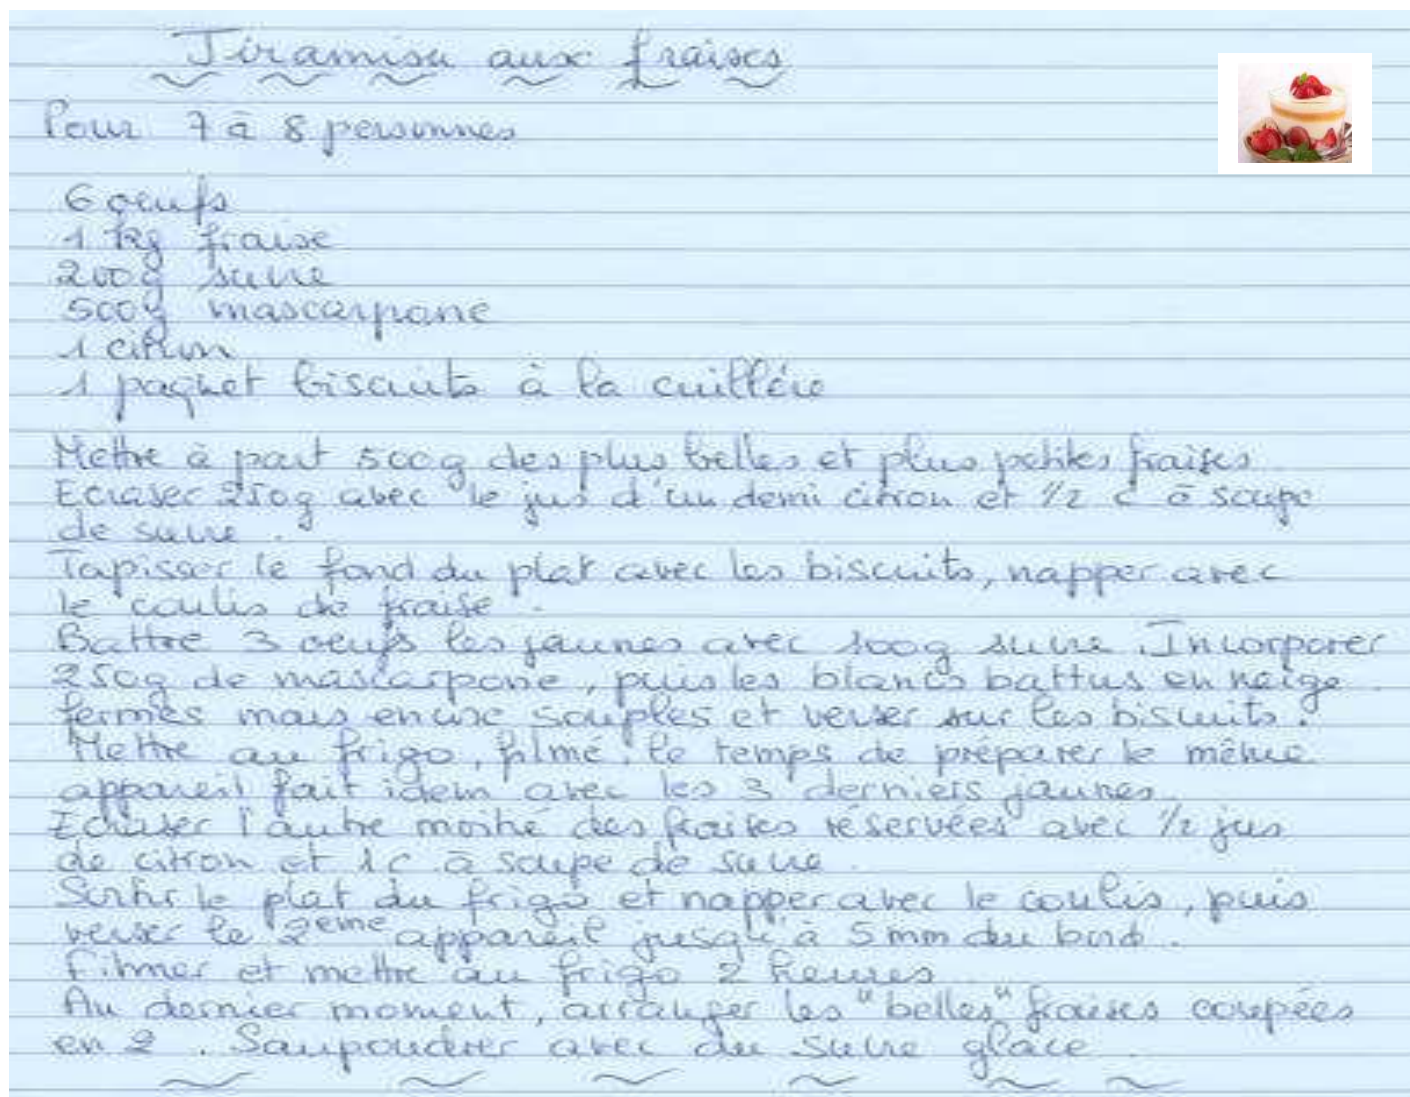 Tiramisu aux fraises
Pour 7 à 8 personnes
6 oeufs
1 kg fraise
200g sucre
500g mascarpone
1 citron
1 paquet biscuits à la cuillére
Mettre à part 500g des plus belles et plus petites fraises
Ecraser 250g avec le jus d'un demi citron et 1/2 c à soupe
de sucre.
Tapisser le fond du plat avec les biscuits, napper avec
le coulis de fraise.
Battre 3 oeufs les jaunes avec 100g sucre. Incorporer
250g de mascarpone, puis les blancs battus en neige
fermes mais encore souples et verser sur les biscuits.
Mettre au frigo, filmé, le temps de préparer le même
appareil fait idem avec les 3 derniers jaunes.
Ecraser l'autre moitié des fraises réservées avec 1/2 jus
de citron et 1c à soupe de sucre.
Sortir le plat du frigo et napper avec le coulis, puis
verser le 2eme appareil jusqu'à 5mm du bord.
Filmer et mettre au frigo 2 heures
Au dernier moment, arranger les "belles" fraises coupées
en 2. Saupoudrer avec du sucre glace.